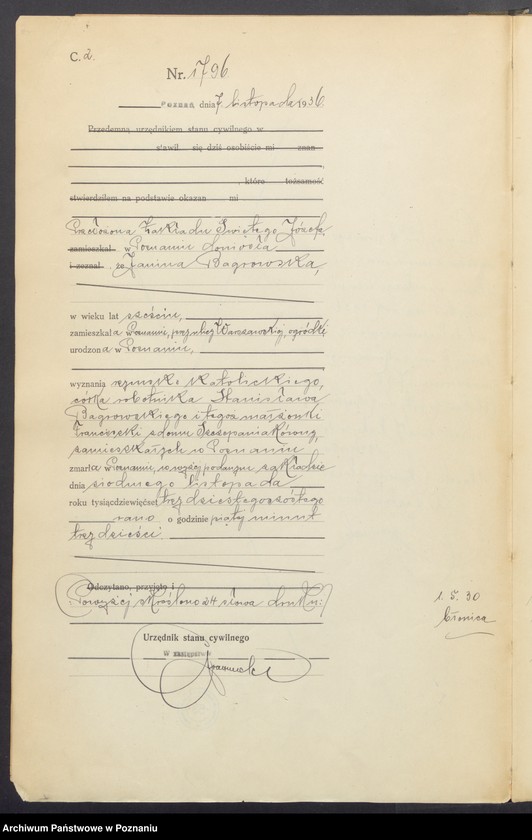 C. 2.
Nr. 1796
POZNAŃ, dnia 7 listopada 1936.
Przedemną urzędnikiem stanu cywilnego w
stawił się dziś osobiście mi znan
, które tożsamość
stwierdziłem na podstawie okazan mi
Przełożona Zakładu Świętego Józefa,
zamieszkał w Poznaniu doniosła
i zeznał, że Janina Bagrowska,
w wieku lat sześciu,
zamieszkała w Poznaniu, przy ulicy Warszawskiej, ogródki
urodzona w Poznaniu,
wyznania rzymsko katolickiego,
córka robotnika Stanisława
Bagrowskiego i tegoż małżonki
Franciszki z domu Szczepaniakówny,
zamieszkałych w Poznaniu
zmarła w Poznaniu, w wyżej podanym zakładzie
dnia siódmego listopada
roku tysiącdziewięćset trzydziestegoszóstego
rano o godzinie piątej minut
trzydzieści.
Odczytano, przyjęto i
Powyżej skreślono 24 słowa druku.
Urzędnik stanu cywilnego
W zastępstwie
1. 5. 30
błonica
Archiwum Państwowe w Poznaniu